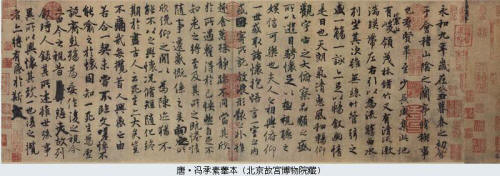 永和九年歲在癸丑暮春之初會
于會稽山陰之蘭亭脩稧事
也羣賢畢至少長咸集此地
有崇山峻領茂林脩竹又有清流激
湍暎帶左右引以為流觴曲水
列坐其次雖無絲竹管弦之
盛一觴一詠亦足以暢敘幽情
是日也天朗氣清惠風和暢仰
觀宇宙之大俯察品類之盛
所以遊目騁懷足以極視聽之
娛信可樂也夫人之相與俯仰
一世或取諸懷抱悟言一室之內
或因寄所託放浪形骸之外雖
趣舍萬殊靜躁不同當其欣
於所遇蹔得於己怏然自足不
知老之將至及其所之既惓情
隨事遷感慨係之矣向之所
欣俛仰之閒以為陳迹猶不
能不以之興懷況脩短隨化終
期於盡古人云死生亦大矣豈
不痛哉每攬昔人興感之由
若合一契未嘗不臨文嗟悼不
能喻之於懷固知一死生為虛
誕齊彭殤為妄作後之視今
亦由今之視昔悲夫故列
敘時人錄其所述雖世殊事
異所以興懷其致一也後之攬
者亦將有感於斯文
唐·冯承素摹本（北京故宫博物院藏）